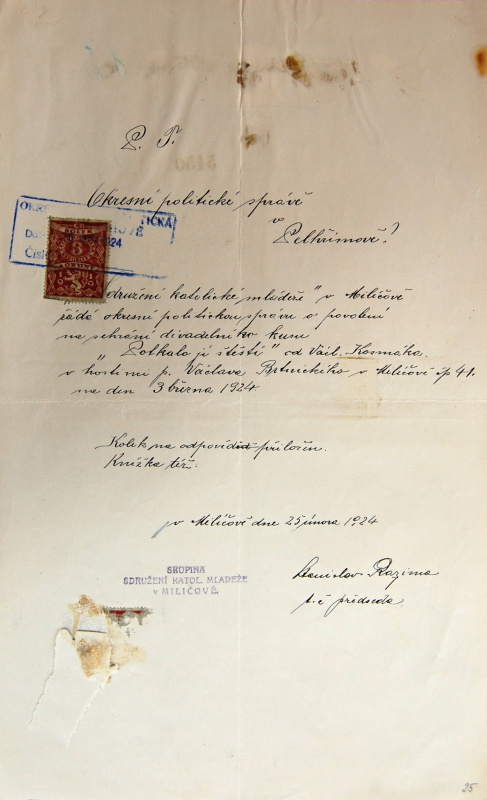 P. T.
Okresní politické správě
v
Pelhřimově!
OKRE TICKÁ
Do 1924
Čís
KOLEK
3
"Sdružení katolické mládeže" v Miličově
žádá okresní politickou správu o povolení
na sehrání divadelního kusu
"Potkalo ji štěstí" od Václ. Kosmáka.
v hostinci p. Václava Brtnického v Miličově čp 41.
na den 3 března 1924.
Kolek na odpověď přiložen.
Knížka též.
v Miličově dne 25 února 1924
SKUPINA
SDRUŽENÍ KATOL. MLÁDEŽE
v MILIČOVĚ.
Stanislav Razima
t. č předseda.
25